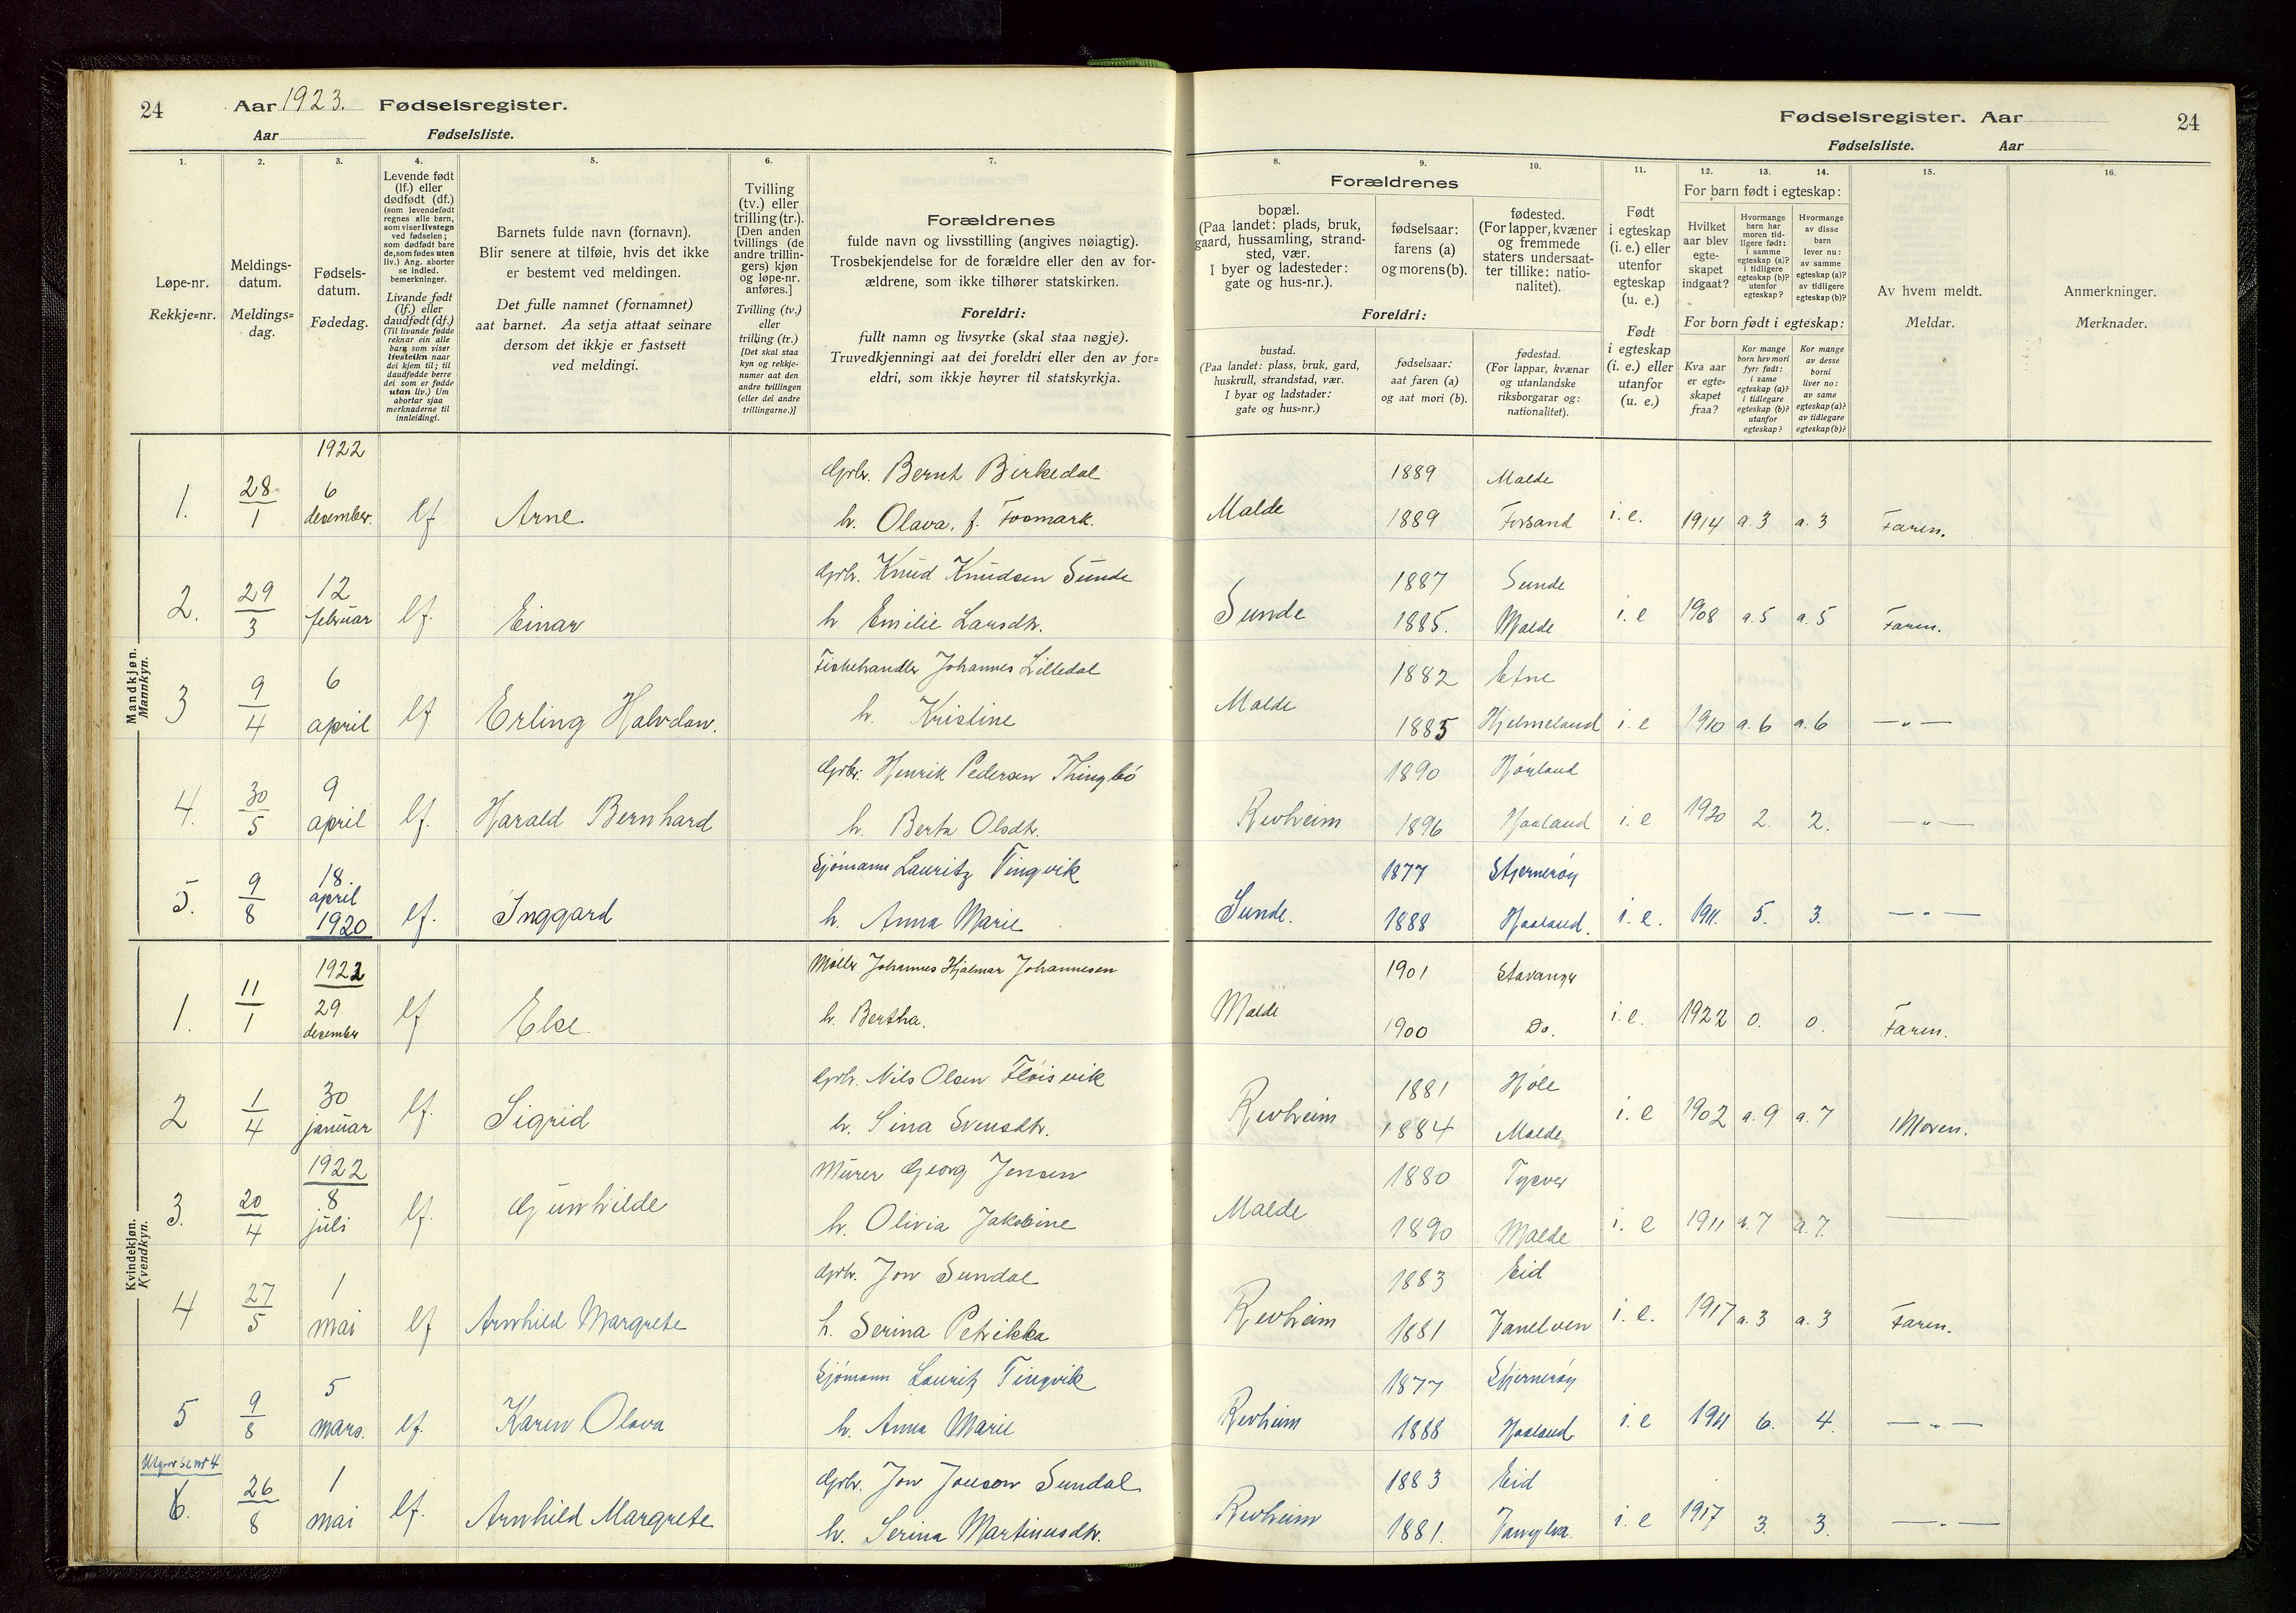 24 Aar 1923. Fødselsregister.
Aar Fødselsliste.
Fødselsregister. Aar 24
Fødselsliste. Aar
1. 2. 3. 4. 5. 6. 7. 8. 9. 10. 11. 12. 13. 14. 15. 16.
Løpe-nr.
Rekkje=nr.
Meldings-
datum.
Meldings=
dag.
Fødsels-
datum.
Fødedag.
Levende født
(lf.) eller
dødfødt (df.)
(som levendefødt
regnes alle barn,
som viser livstegn
ved fødselen;
som dødfødt bare
de, som fødes uten
liv.) Ang. aborter
se indled.
bemerkninger.
Livande født
(lf.) eller
daudfødt (df.)
(Til livande fødde
reknar ein alle
barn som viser
livsteikn naar
dei kjem til; til
daudfødde berre
dei som er fødde
utan liv.) Um
abortar sjaa
merknaderne til
innleidingi.
Barnets fulde navn (fornavn).
Blir senere at tilføie, hvis det ikke
er bestemt ved meldingen.
Det fulle namnet (fornamnet)
aat barnet. Aa setja attaat seinare
dersom det ikkje er fastsett
ved meldingi.
Tvilling
(tv.) eller
trilling (tr.).
[Den anden
tvillings (de
andre trillin-
gers) kjøn
og løpe-nr.
anføres.]
Tvilling (tv.)
eller
trilling (tr.)
[Det skal staa
kyn og rekkje-
numer aat den
andre tvillingen
(eller dei andre
trillingarne.)]
Forældrenes
fulde navn og livsstilling (angives nøiagtig).
Trosbekjendelse for de forældre eller den av for-
ældrene, som ikke tilhører statskirken.
Foreldri:
fullt namn og livsyrke (skal staa nøgje).
Truvedkjenningi aat dei foreldri eller den av for=
eldri, som ikkje høyrer til statskyrkja.
Forældrenes
bopæl.
(Paa landet: plads, bruk,
gaard, hussamling, strand-
sted, vær.
I byer og ladesteder:
gate og hus-nr.).
fødselsaar:
farens (a)
og morens (b).
fødested.
(For lapper, kvæner
og fremmede
staters undersaat-
ter tillike: natio-
nalitet).
Foreldri:
bustad.
(Paa landet: plass, bruk, gard,
huskrull, strandstad, vær.
I byar og ladstader:
gate og hus=nr.)
fødselsaar:
aat faren (a)
og aat mori (b).
fødestad.
(For lappar, kvænar
og utanlandske
riksborgarar og:
nationalitet).
Født
i egteskap
(i. e.) eller
utenfor
egteskap
(u. e.)
Født
i egteskap
(i. e.) eller
utanfor
egteskap
(u. e.)
For barn født i egteskap:
Hvilket
aar blev
egte-
skapet
indgaat?
Hvormange
barn har
moren tid-
ligere født:
i samme
egteskap (a)?
i tidligere
egteskap (b)?
utenfor
egteskap?
Hvormange
av disse
barn
lever nu:
av samme
egteskap (a)?
av tidligere
egteskap (b)?
For born født i egteskap:
Kva aar
er egte=
skapet
fraa?
Kor mange
born hev mori
fyrr født:
i same
egteskap (a)?
i tidlegare
egteskap (b)?
utanfor
egteskap?
Kor mange
av desse
borni
liver no:
av same
egteskap (a)?
av tidlegare
egteskap (b)?
Av hvem meldt.
Meldar.
Anmerkninger.
Merknader.
Mandkjøn.
Mannkyn.
1922
Grbr. Bernt Birkedal 1889 Malde
1. 28/1 6 desember. lf Arne. h. Olava, f. Fosmark. Malde 1889 Forsand i. e. 1914 a. 3 a. 3 Faren.
Grbr. Knud Knudsen Sunde 1887 Sunde
2. 29/3 12 februar lf. Einar h. Emilie Larsdtr. Sunde 1885. Malde i. e 1908 a. 5 a. 5 Faren.
Fiskehandler Johannes Lilledal 1882 Etne
3 9/4 6 april lf Erling Halvdan. h. Kristine Malde 1885 Hjelmeland i. e 1910 a. 6 a. 6 — " —
Grbr. Henrik Pedersen Thingbö 1890 Höyland
4. 30/5 9 april lf. Harald Bernhard h. Berta Olsdtr. Revheim 1896 Haaland i. e 1920 2. 2. — " —
Sjömann Lauritz Tingvik 1877 Stjernerøy
5. 9/8 18. april 1920 lf. Inggard h. Anna Marie Sunde. 1888 Haaland. i. e. 1911. 5. 3. — " —
Kvindekjøn.
Kvendkyn.
1922
Møller Johannes Hjalmar Johannesen 1901 Stavanger
1. 11/1 29 desember lf Else. h. Bertha. Malde 1900 Do. i. e. 1922 0. 0. Faren.
Grbr. Nils Olsen Fløisvik 1881 Høle
2 1/4 30 januar lf. Sigrid h. Sina Svensdtr. Revheim 1884 Malde i. e 1902 a. 9 a. 7 Moren.
1922
Murer Georg Jensen 1880 Tysvær
3. 20/4 8 juli lf. Gunhilde h. Olivia Jakobine Malde 1890 Malde i. e 1911 a. 7 a. 7. —
Grbr. Jon Sundal 1883 Eid
4 27/5 1 mai lf Arnhild Margrete h. Serina Petrikka Revheim 1881 Vanelven i. e. 1917 a. 3 a. 3 Faren.
Sjömann Lauritz Tingvik 1877 Stjernerøy
5 9/8 5 mars. lf. Karen Olava h. Anna Marie Revheim 1888 Haaland i. e 1911 6. 4. — " —
Grbr. Jon Jonson Sundal 1883 Eid
6. 26/8 1 mai lf. Arnhild Margrete h. Serina Martinusdtr. Revheim 1881. i. e 1917 3. 3. — " —